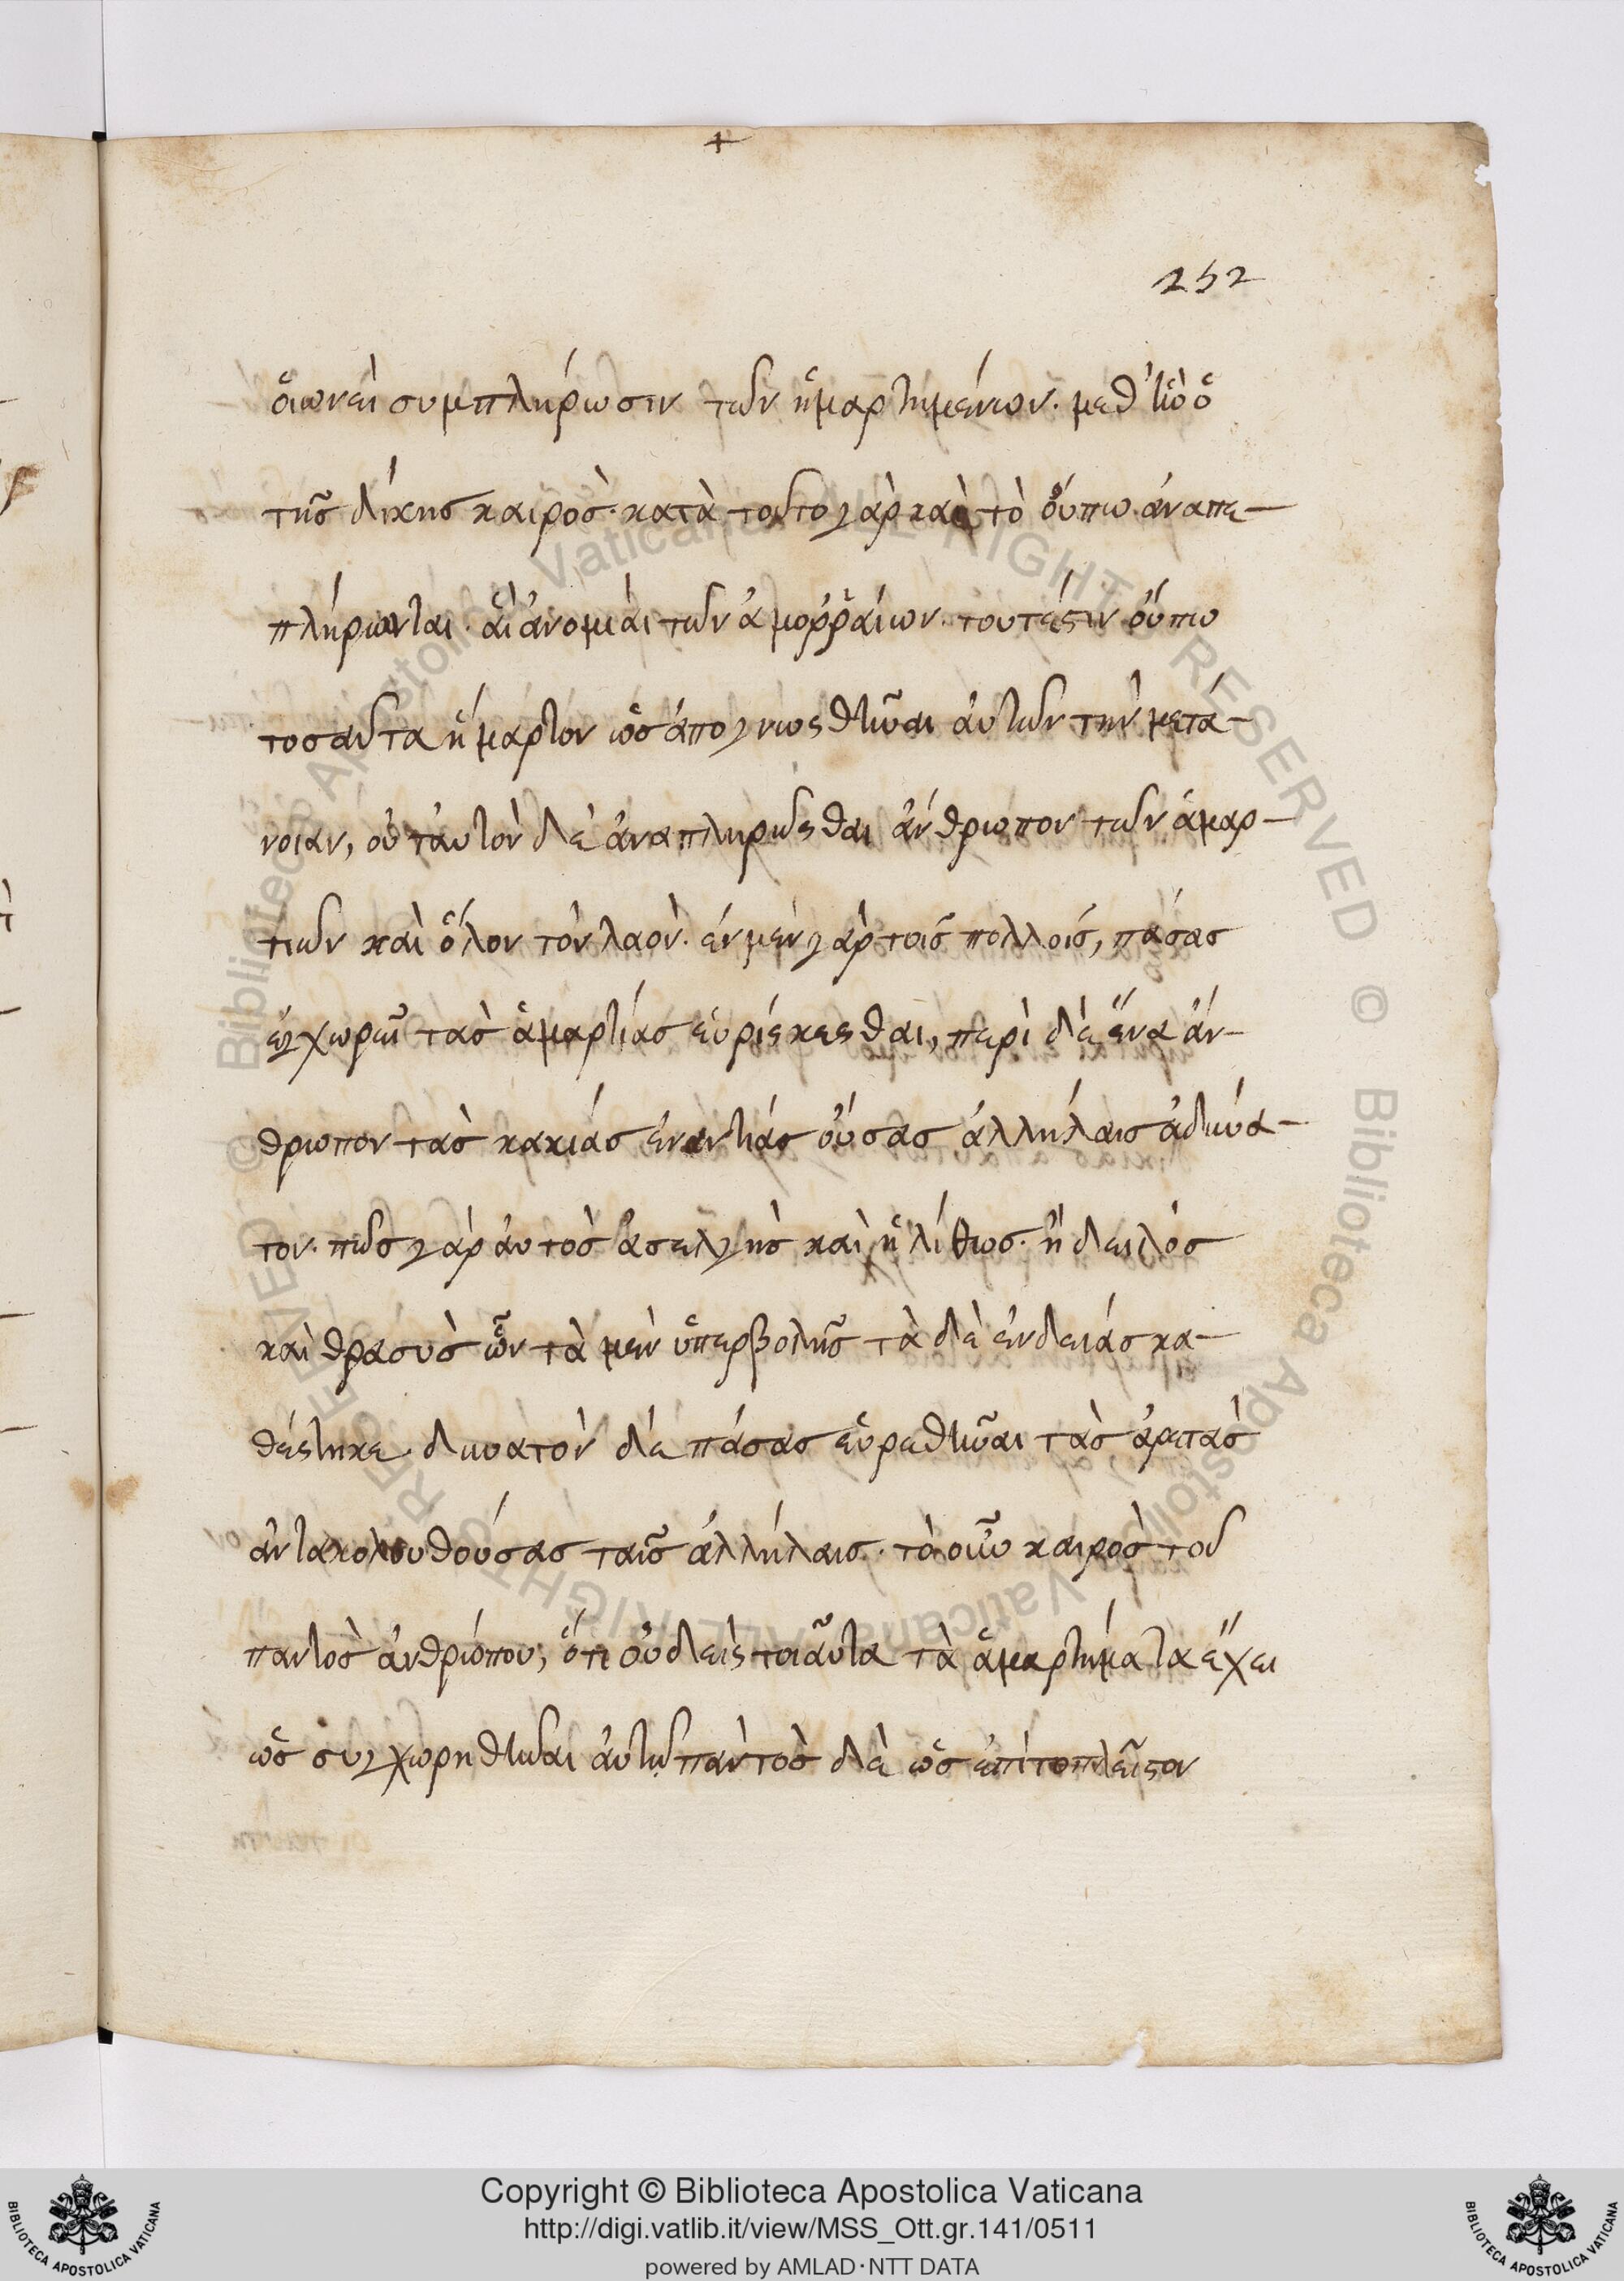 +
252
ὁιωνεὶ συμπλήρωσιν τῶν ἡμαρτημένων. μεθ ἣν ὁ
τῆς δίκης καιρὸς. κατὰ τοῦτο γὰρ καὶ τὸ ὀύπω ἀναπε-
πλήρωνται. ἁὶ ἀνομίαι τῶν ἀμοῤῥαίων. τουτέστιν ὀύπω
τοσαῦτα ἥμαρτον ὡς ἀπογνωσθῆναι ἀυτῶν τὴν μετά-
νοιαν, οὐ ταυτὸν δὲ ἀναπληροῦσθαι ἄνθρωπον τῶν ἁμαρ-
τιῶν καὶ ὅλον τὸν λαὸν. ἐν μὲν γὰρ τοῖς πολλοῖς, πάσας
ἐγχωρεῖ τὰς ἁμαρτίας ἑυρίσκεσθαι, περὶ δὲ ἕνα ἄν-
θρωπον τὰς κακίας ἐναντίας ὀύσας ἀλλήλαις ἀδύνα-
τον. πῶς γὰρ ἀυτὸς ἀσελγὴς καὶ ἠλίθιος. ἢ δειλὸς
καὶ θρασὺς ὧν τὰ μὲν ὑπερβολῆς τὰ δὲ ἐνδείας κα-
θέστηκε. δυνατὸν δὲ πάσας ἑυρεθῆναι τὰς ἀρετὰς
ἀντακολουθούσας ταῖς ἀλλήλαις. τὸ οὖν καιρὸς τοῦ
παντὸς ἀνθρώπου, ὅτι οὐδεὶς τοιᾶυτα τὰ ἁμαρτήματα ἔχει
ὡς συγχωρηθῆναι ἀυτῶ παντὸς δὲ ὡς ἐπὶ τοπλεῖστον
Copyright © Biblioteca Apostolica Vaticana
http://digi.vatlib.it/view/MSS_Ott.gr.141/0511
powered by AMLAD·NTT DATA